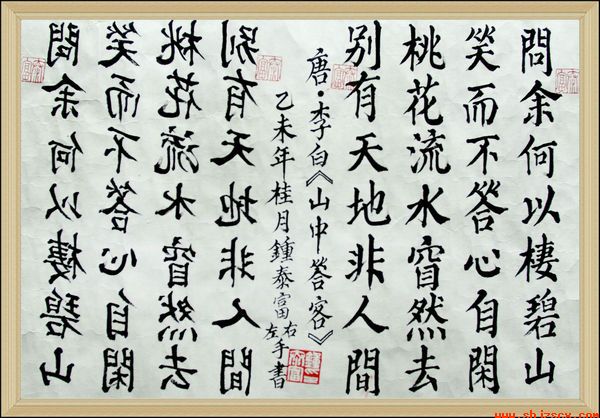 問余何以棲碧山
笑而不答心自閑
桃花流水窅然去
别有天地非人間
唐·李白《山中答客》
乙未年桂月鍾泰富右左手書
别有天地非人間
桃花流水窅然去
笑而不答心自閑
問余何以棲碧山